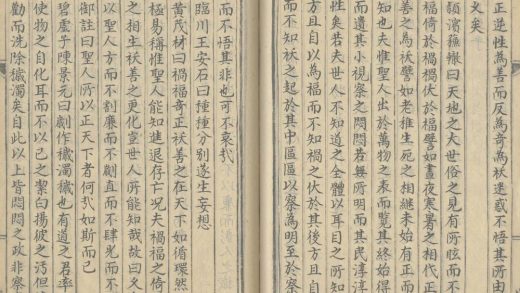 正逆性為善而反為奇為祅迷惑不悟其所由
久矣
潁濱蘇轍曰天地之大世俗之見有所眩而不
福倚於禍禍伏於福譬如晝夜寒暑之相代正
善之為祅譬如老稚生死之相繼未始有正而
知也夫惟聖人出於萬物之表而覽其終始得
而遺其小視察之悶悶若無所明而其民淳淳
性矣若夫世人不知道之全體以耳目之所知
方且自以為福而不知禍之伏於其後方且自
而不知祅之起於其中區區以察為明至於察
而不悟其非也可不哀哉
臨川王安石曰種種分別遂生妄想
黃茂材曰禍福奇正祅善之在天下如循環然
極易稱惟聖人能知進退存亡況夫禍福之倚
之相生祅善之更化豈世人所能知哉故曰人
以聖人方而不割廉而不劌直而不肆光而不
御註曰聖人所以正天下者何哉如斯而已
碧虛子陳景元曰劌作穢濁穢也有道之君率
使物之自化耳而不以己之潔白揚彼之汙但
勸而洗除穢濁矣自此以上皆悶悶之政非察